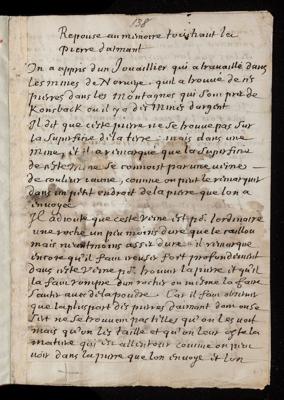 138
Reponse au memoire touchant la
pierre d'aimant
On a appris d'un Jouaillier qui a trauaillé dans
les mines de Noruege, qu'il a trouué de ces
pierres dans les Montagnes qui sont pres de
Konsback ou il y a des Mines d'argent
Il dit que cette pierre ne se trouue pas sur
la superficie de la terre mais dans une
mine, et il a remarqué que la superficie
de cette mine se connoist par une veine
de couleur jaune, comme on peut le remarquer
dans un petit endroit de la pierre que l'on a
enuoyée
Il adioute que cette veine est po. l'ordinaire
une roche un peu moins dure que le caillou
mais neantmoins assez dure. il remarque
encore qu'il faut creuser fort profondement
dans cette veine po. trouuer la pierre et qu'il
la faut rompre du rocher ou mesme la faire
sauter auec de la poudre. Car il faut obseruer
que la pluspart des pierres d'aimant dont on se
sert ne se trouuent pas telles qu'on les voit
mais qu'on les taille et qu'on leur oste la
matiere qui est allentour comme on peut
voir dans la pierre que l'on enuoye et l'on